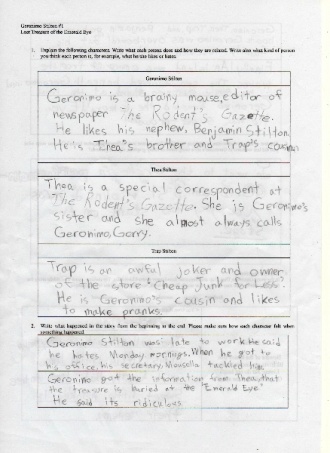 Geronimo Stilton #1
Lost Treasure of the Emerald Eye
1. Explain the following characters. Write what each person does and how they are related. Write also what kind of person
you think each person is, for example, what he/she likes or hates.
Geronimo Stilton
Geronimo is a brainy mouse, editor of
newspaper The Rodent's Gazette.
He likes his nephew, Benjamin Stilton.
He is Thea's brother and Trap's cousin
Thea Stilton
Thea is a special correspondent at
The Rodent's Gazette. She is Geronimo's
sister and she almost always calls
Geronimo, Gerry.
Trap Stilton
Trap is an awful joker and owner
of the store "Cheap Junk for Less".
He is Geronimo's cousin and likes
to make pranks.
2. Write what happened in the story from the beginning to the end. Please make sure how each character felt when
something happened.
Geronimo Stilton was late to work. He said
he hates Monday mornings. When he got to
his office, his secretary, Mousella tackled him.
Geronimo got the information from Thea, that
the treasure is buried at the "Emerald Eye"
He said its ridiculous.